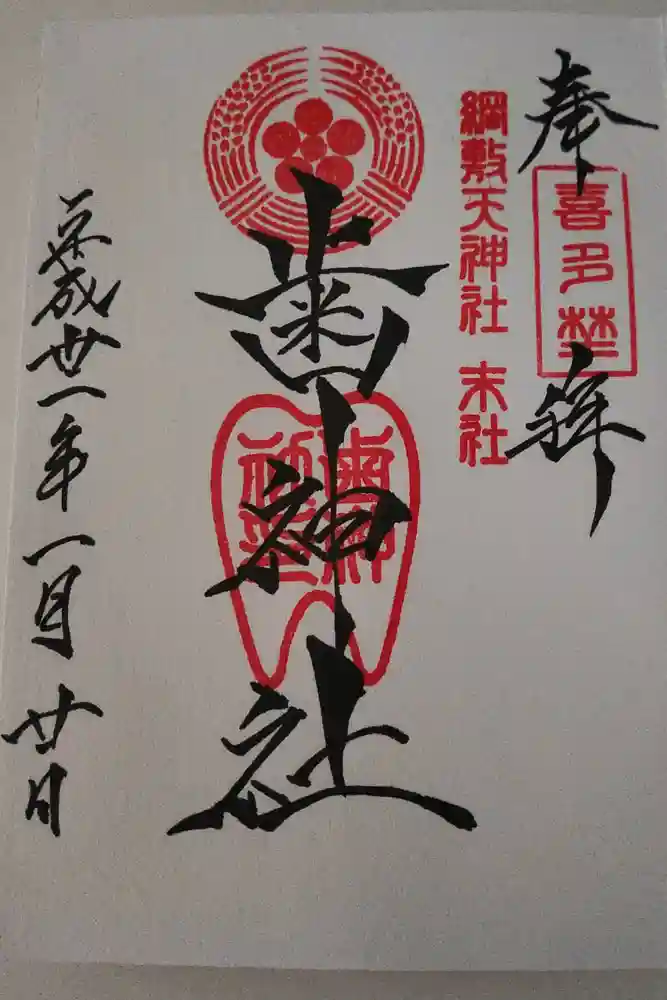 奉拝
喜多埜
綱敷天神社 末社
歯神社
平成廿一年一月廿日